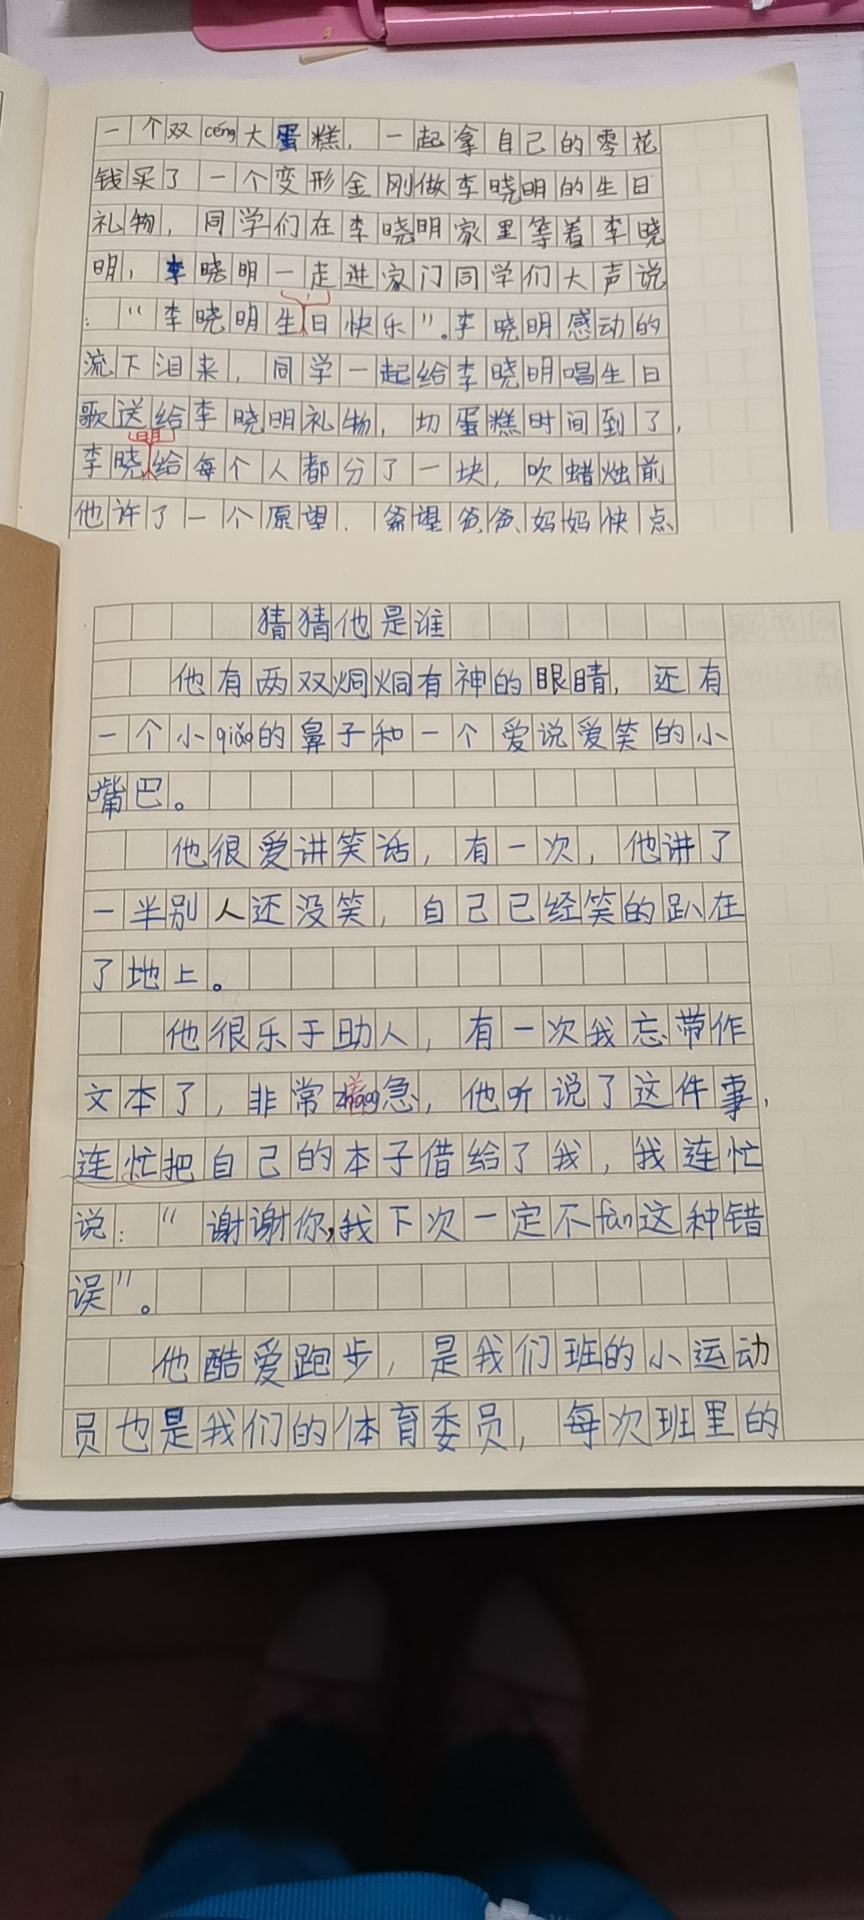 一个双céng大蛋糕，一起拿自己的零花
钱买了一个变形金刚做李晓明的生日
礼物，同学们在李晓明家里等着李晓
明，李晓明一走进家门同学们大声说
：“李晓明生日快乐”。李晓明感动的
流下泪来，同学一起给李晓明唱生日
歌送给李晓明礼物，切蛋糕时间到了，
明
李晓给每个人都分了一块，吹蜡烛前
他许了一个愿望，爸爸妈妈快点
猜猜他是谁
他有两双炯炯有神的眼睛，还有
一个小qiǎo的鼻子和一个爱说爱笑的小
嘴巴。
他很爱讲笑话，有一次，他讲了
一半别人还没笑，自己已经笑的趴在
了地上。
他很乐于助人，有一次我忘带作
文本了，非常急，他听说了这件事，
连忙把自己的本子借给了我，我连忙
说：“谢谢你，我下次一定不fàn这种错
误”。
他酷爱跑步，是我们班的小运动
员也是我们的体育委员，每次班里的